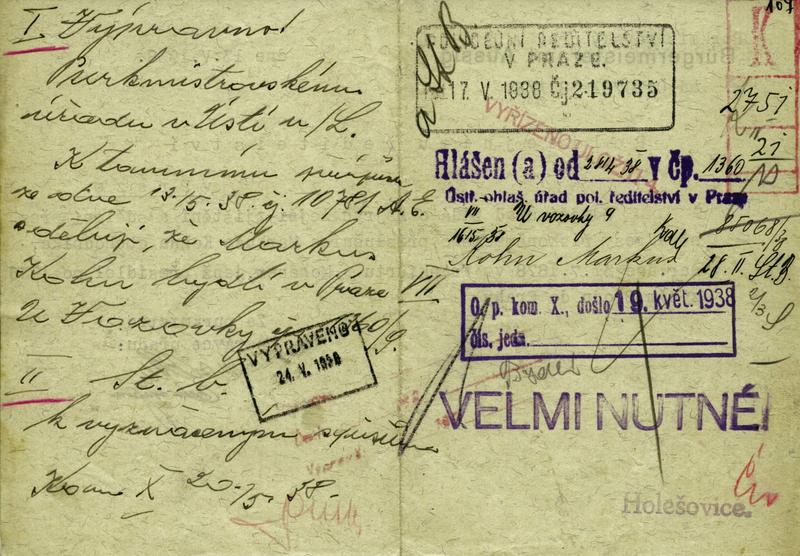 I. Výpravno!
Purkmistrovskému
úřadu v Ústí n/L.
K tamnímu přípisu
ze dne 13./5. 38. čj. 10781 A. E.
sděluji, že Markus
Kohn bydlí v Praze VII
U Vozovky čp. 1360/9.
II St. b.
k vyznačeným
Kom X 20./5. 38.
VYPRAVENO
24. V. 1938
a St B
ŘEDITELSTVÍ
V PRAZE.
17. V. 1938 Čj 219735
VYŘÍZENO
107
2751
21
10
Hlášen (a) od 28/4 38 v čp. 1360
Ústř.-ohlaš. úřad pol. ředitelství v Praze
VII U vozovky 9
16/5 38
Kohn Markus
28. II. St. B.
2/3 L
O. p. kom. X., došlo 19. květ. 1938
čís. jedn.
VELMI NUTNÉ!
Holešovice.